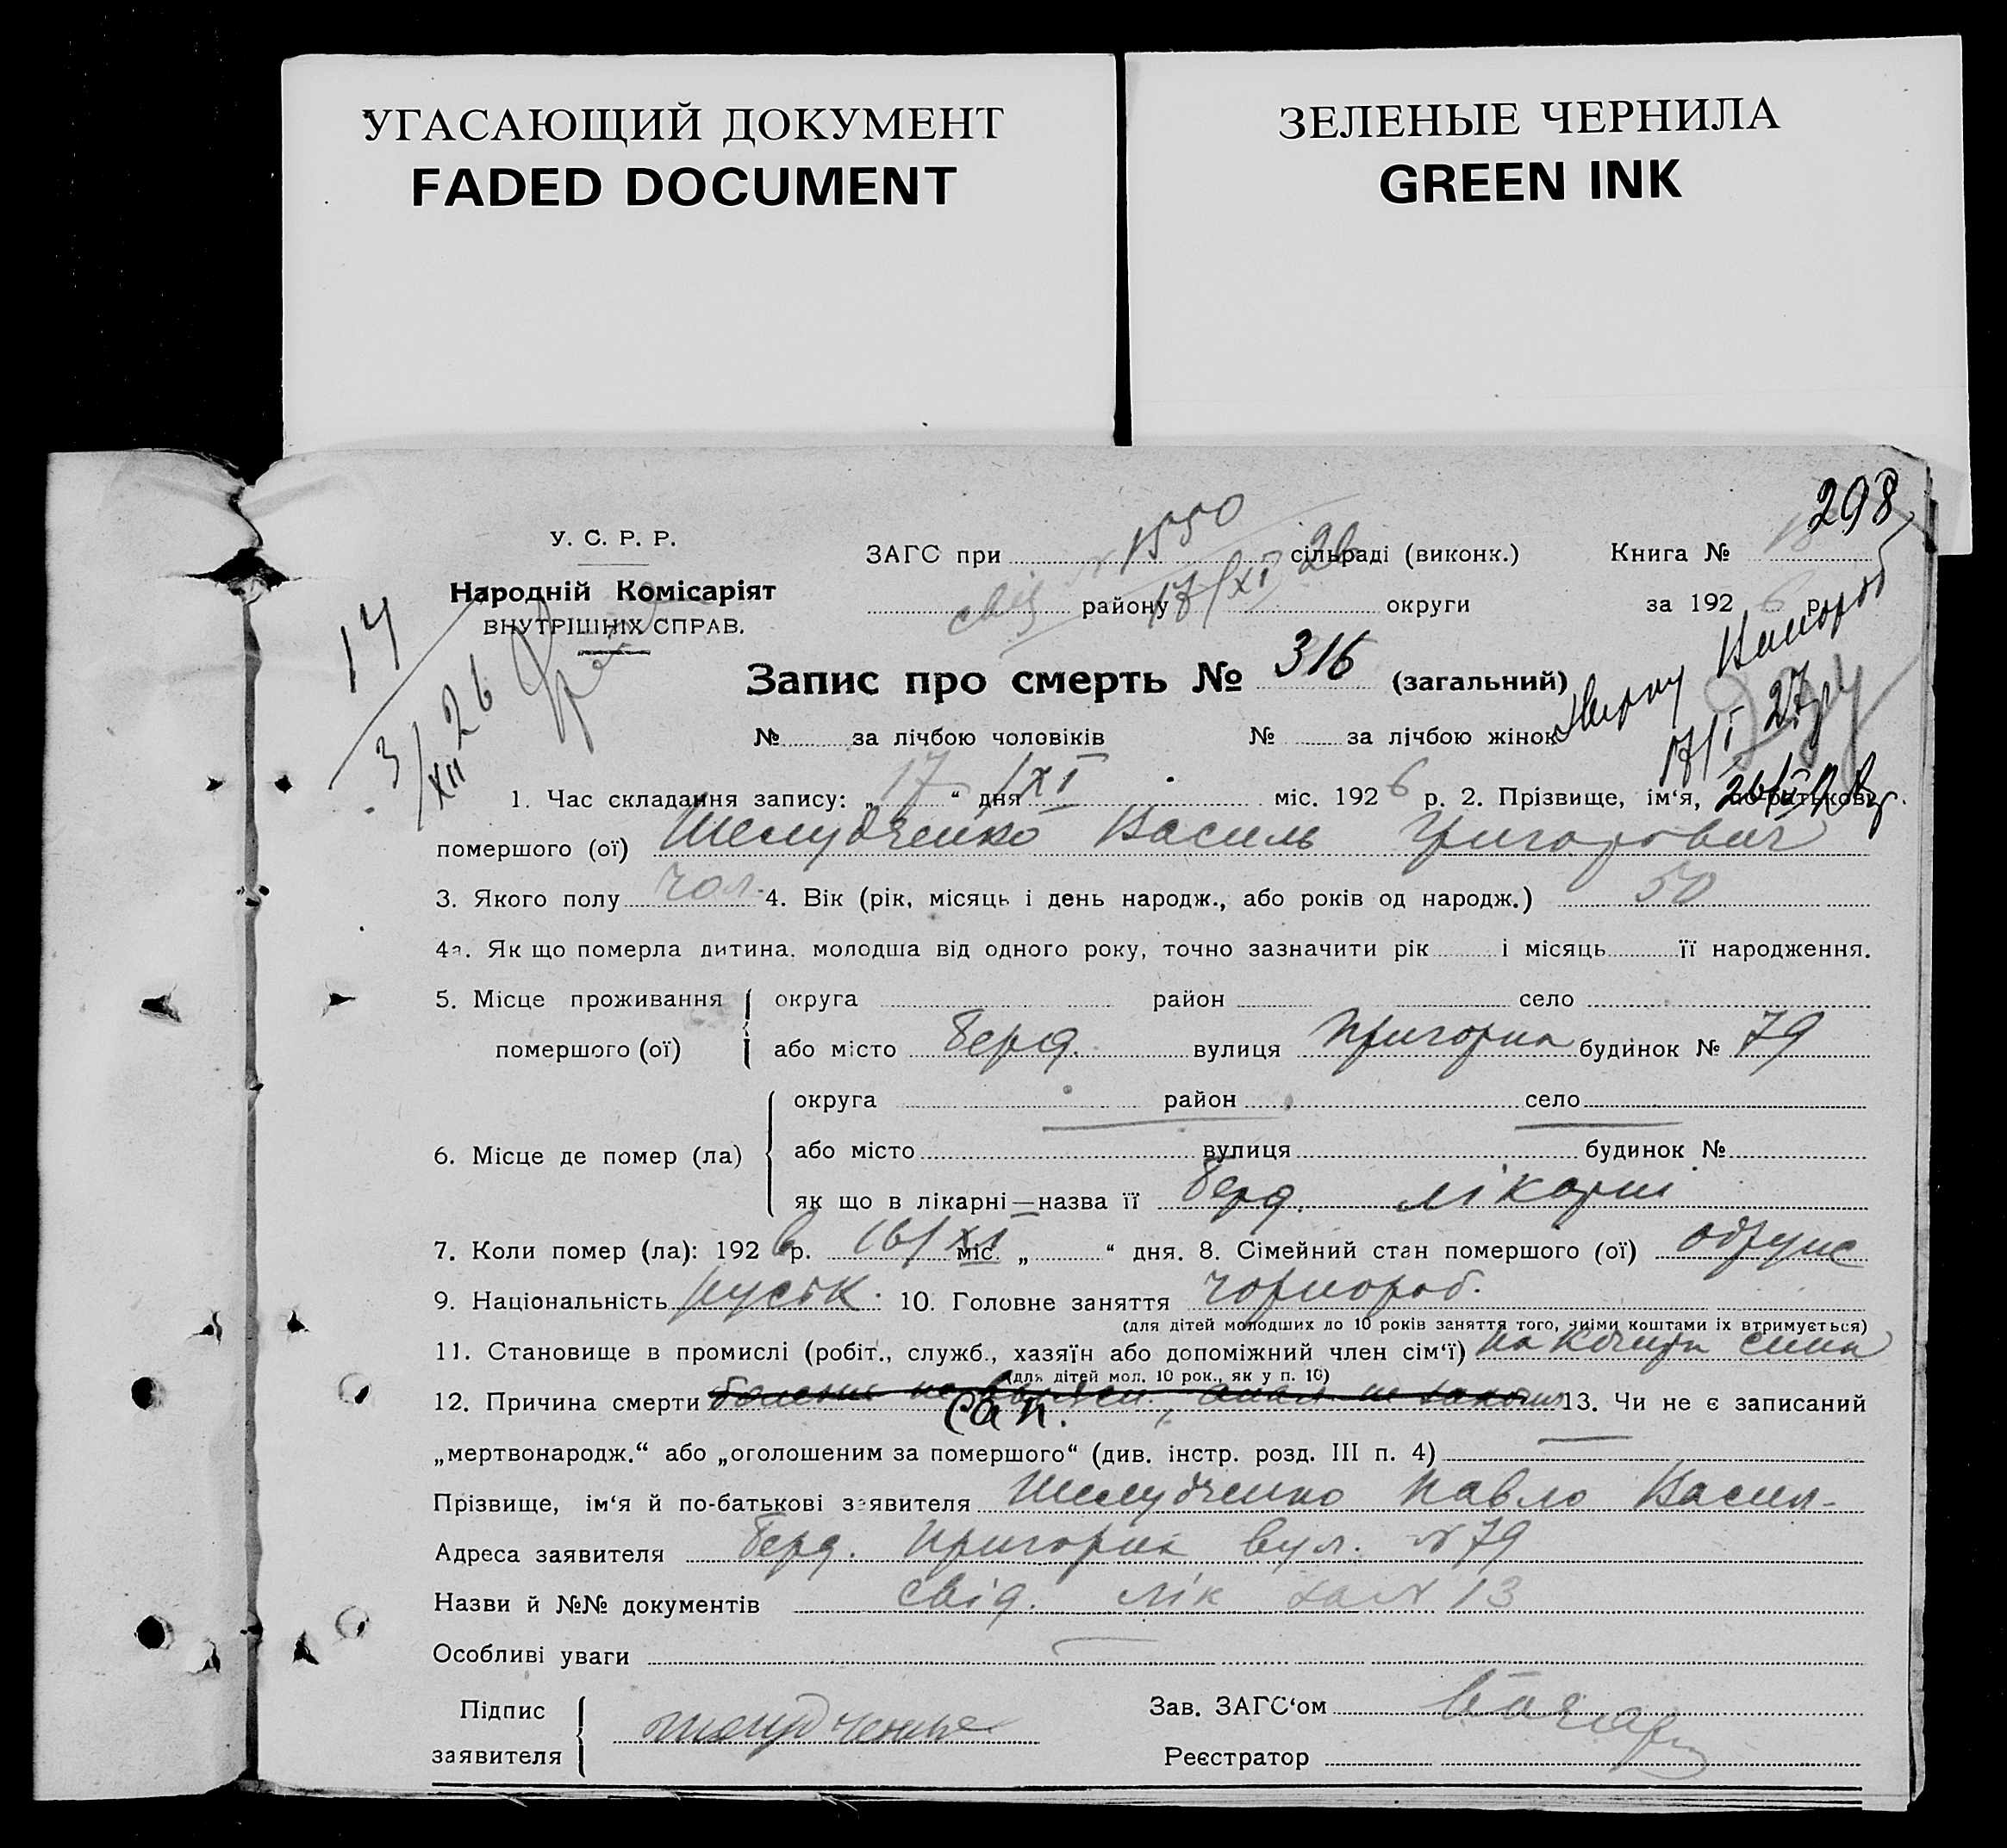 УГАСАЮЩИЙ ДОКУМЕНТ
FADED DOCUMENT
ЗЕЛЕНЫЕ ЧЕРНИЛА
GREEN INK
298
У. С. Р. Р.
Народній Комісаріят
ВНУТРІШНІХ СПРАВ.
14
3/XII 26
ЗАГС при 1550 сільраді (виконк.) Книга № 13
району 17/XI округи за 1926 р.
Запис про смерть № 316 (загальний)
17/I 27
№ за лічбою чоловіків № за лічбою жінок
1. Час складання запису: „17“ дня XI міс. 1926 р. 2. Прізвище, ім‘я, по-батькові
помершого (ої) Шелудченко Василь Григорович
3. Якого полу чол. 4. Вік (рік, місяць і день народж., або років од народж.) 50
4а. Як що померла дитина, молодша від одного року, точно зазначити рік і місяць її народження.
5. Місце проживання помершого (ої) округа район село
або місто Берд. вулиця Пригорна будинок № 79
6. Місце де помер (ла) округа район село
або місто вулиця будинок №
як що в лікарні—назва її Берд. лікарні
7. Коли помер (ла): 1926 р. 16/XI міс. „ “ дня. 8. Сімейний стан помершого (ої) одруже
9. Національність руськ. 10. Головне заняття чорнороб.
(для дітей молодших до 10 років заняття того, чиїми коштами їх втримується)
11. Становище в промислі (робіт., служб., хазяїн або допоміжний член сім‘ї) на кошти сина
(для дітей мол. 10 рок., як у п. 10)
12. Причина смерти Сап. 13. Чи не є записаний
„мертвонародж.“ або „оголошеним за помершого“ (див. інстр. розд. III п. 4)
Прізвище, ім‘я й по-батькові заявителя Шелудченко Павло Васил-
Адреса заявителя Берд. Пригорна вул. № 79
Назви й №№ документів свід. лік за № 13
Особливі уваги
Підпис заявителя Зав. ЗАГС‘ом
Реєстратор